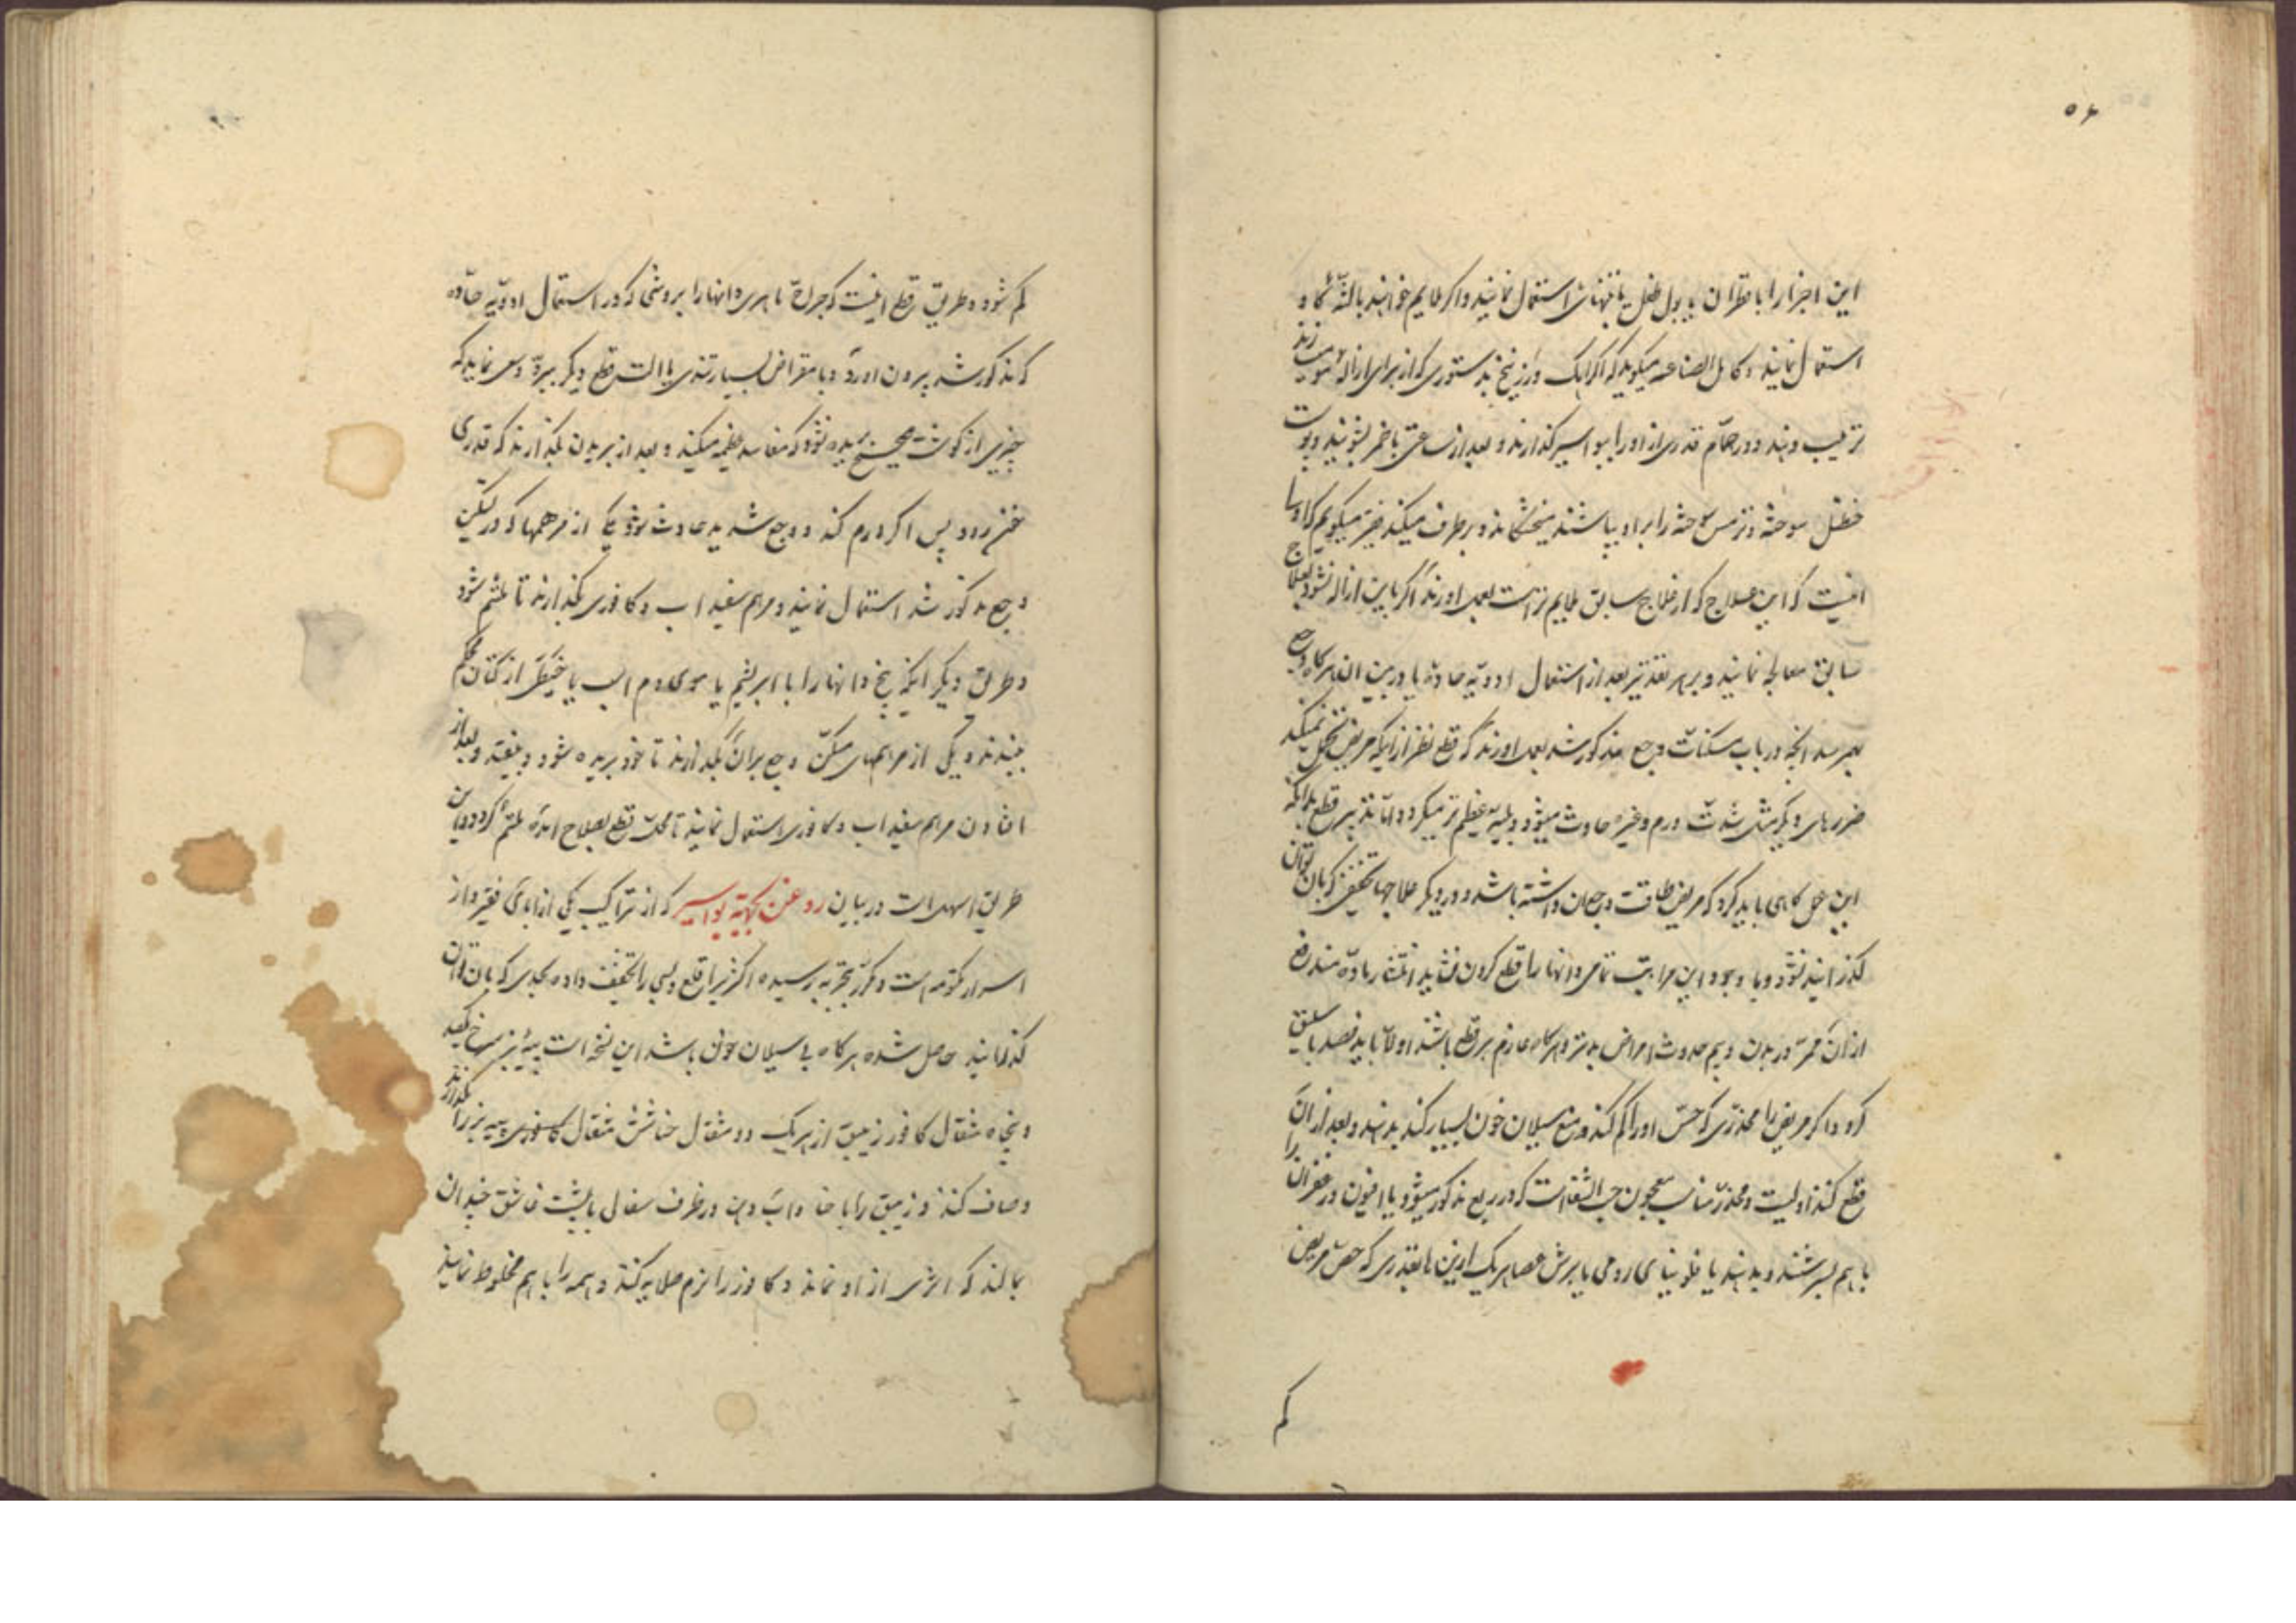 ٥٦
این اجزا را با قطران یا بول طفل یا بتنهائی استعمال نمایند و اکر ملایم خواهند با لثه گاو
استعمال نمایند و کامل الصناعه میکوید که اکر اهک و زرنیخ بدستوری که از برای ازاله موی
ترتیب دهند و در حمام قدری از او را ببواسیر کذارند و بعد از ساعتی با خمر بشویند و پوست
حنظل سوخته و ترمس سوخته را بر او بپاشند میخشکاند و برطرف میکند فقیر میکویم که اولا
انیست که این علاج که از علاج سابق ملایم تر است بعمل اورند اکر باین ازاله نشود بعلاج
سابق معالجه نمایند و بر هر تقدیر بعد از استعمال ادویه حاده یا در بین ان هر کاه وجع
بهم رسد انچه در باب مسکنات وجع مذکور شد بعمل اورند که قطع نظر از اینکه مریض تحمل نمیکند
ضررهای دیکر مثل شدت ورم و غیره حادث میشود و بلیه عظیم تر میکردد و اما تدبیر قطع بدانکه
این عمل کاهی باید کرد که مریض طاقت و رجحان داشته باشد و در دیکر علاجها تخفیفی که بان توان
کذرانید نشود و با وجود این مراتب تمامی دانها را قطع کردن نشاید انتشار ماده مندفع
از ان ممر در بدن و بیم حدوث امراض بدتر و هر کاه عازم بر قطع باشند اولا باید فصد باسلیق
کرد و اکر مریض را مخدری که حس او را کم کند و منع سیلان خون بسیار کند بدهند و بعد از ان
قطع کنند اولیست و مخدر مناسب معجون حب الشفاست که در ربع مذکور میشود یا افیون و زعفران را
با هم بسرشند و بدهند یا فلونیای رومی یا برشعصا هر یک از اینها بقدری که حس مریض
کم
کم شود و طریق قطع انیست که جراح ماهری دانها را بروشی که در استعمال ادویه حاده
که مذکور شد بیرون اورد و با مقراض بسیار تندی یا الت قطع دیکر ببرد و سعی نماید که
چیزی از کوشت صحیح بریده نشود که مفاسد عظیمه میکند و بعد از بریدن بکذارند که قدری
خون رود پس اکر ورم کند و وجع شدید حادث شود یکی از مرهمها که در تسکین
وجع مذکور شد استعمال نمایند و مرهم سفیداب و کافوری بکذارند تا ملتئم شود
و طریق دیکر انکه بیخ دانها را با ابریشم یا موی دم اسب یا خیطی از کتان محکم
ببندند و یکی از مرهمهای مسکن وجع بران بکذارند تا خود بریده شود و بیفتد و بعد از
افتادن مرهم سفیداب و کافوری استعمال نمایند تا محل قطع بصلاح امده ملتئم کردد و این
طریق اسهل است در بیان روغن بجهة بواسیر که از تراکیب یکی از ابای فقیر و از
اسرار مکتومه است و مکرر بتجربه رسیده اکثر را قلع و بسی را تخفیف داده بحدی که بان توان
کذرانید حاصل شده هر کاه بی سیلان خون باشد این نسخه است پیه بز سرخ یکصد
و پنجاه مثقال کافور زیبق از هر یک دو مثقال حنا شش مثقال پیه بز را بکدازند
و صاف کنند و زیبق را با حنا و اب دهن در ظرف سفال با پشت قاشق چندان
بمالند که اثری از او نماند و کافور را نرم صلایه کنند و همه را با هم مخلوط نمایند